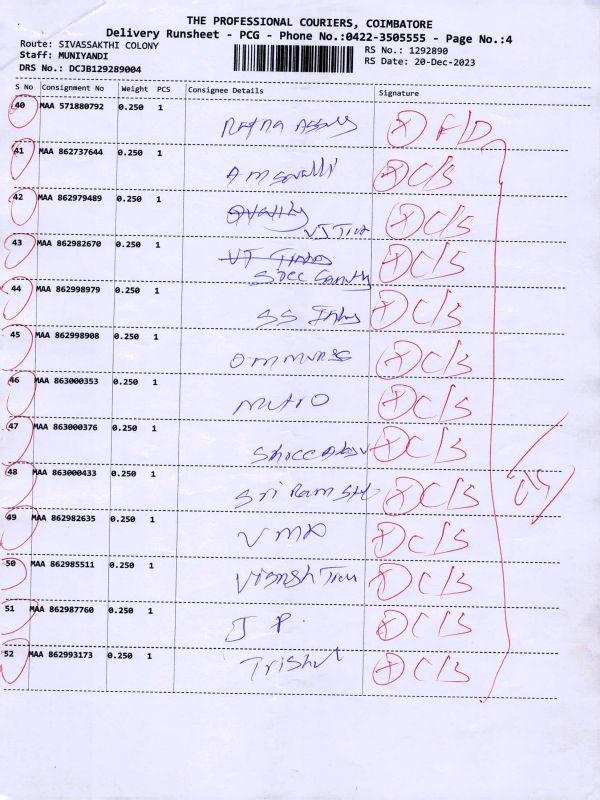 THE PROFESSIONAL COURIERS, COIMBATORE
Delivery Runsheet - PCG - Phone No.:0422-3505555 - Page No.:4
Route: SIVASSAKTHI COLONY
Staff: MUNIYANDI
DRS No.: DCJB129289004
RS No.: 1292890
RS Date: 20-Dec-2023
S No Consignment No Weight PCS Consignee Details Signature
40 MAA 571880792 0.250 1 F/D
41 MAA 862737644 0.250 1 C/S
42 MAA 862979489 0.250 1 Quality C/S
43 MAA 862982670 0.250 1 C/S
44 MAA 862998979 0.250 1 SS C/S
45 MAA 862998908 0.250 1 C/S
46 MAA 863000353 0.250 1 C/S
47 MAA 863000376 0.250 1 C/S
48 MAA 863000433 0.250 1 Sri Ram C/S
49 MAA 862982635 0.250 1 C/S
50 MAA 862985511 0.250 1 C/S
51 MAA 862987760 0.250 1 J P. C/S
52 MAA 862993173 0.250 1 Trishul C/S